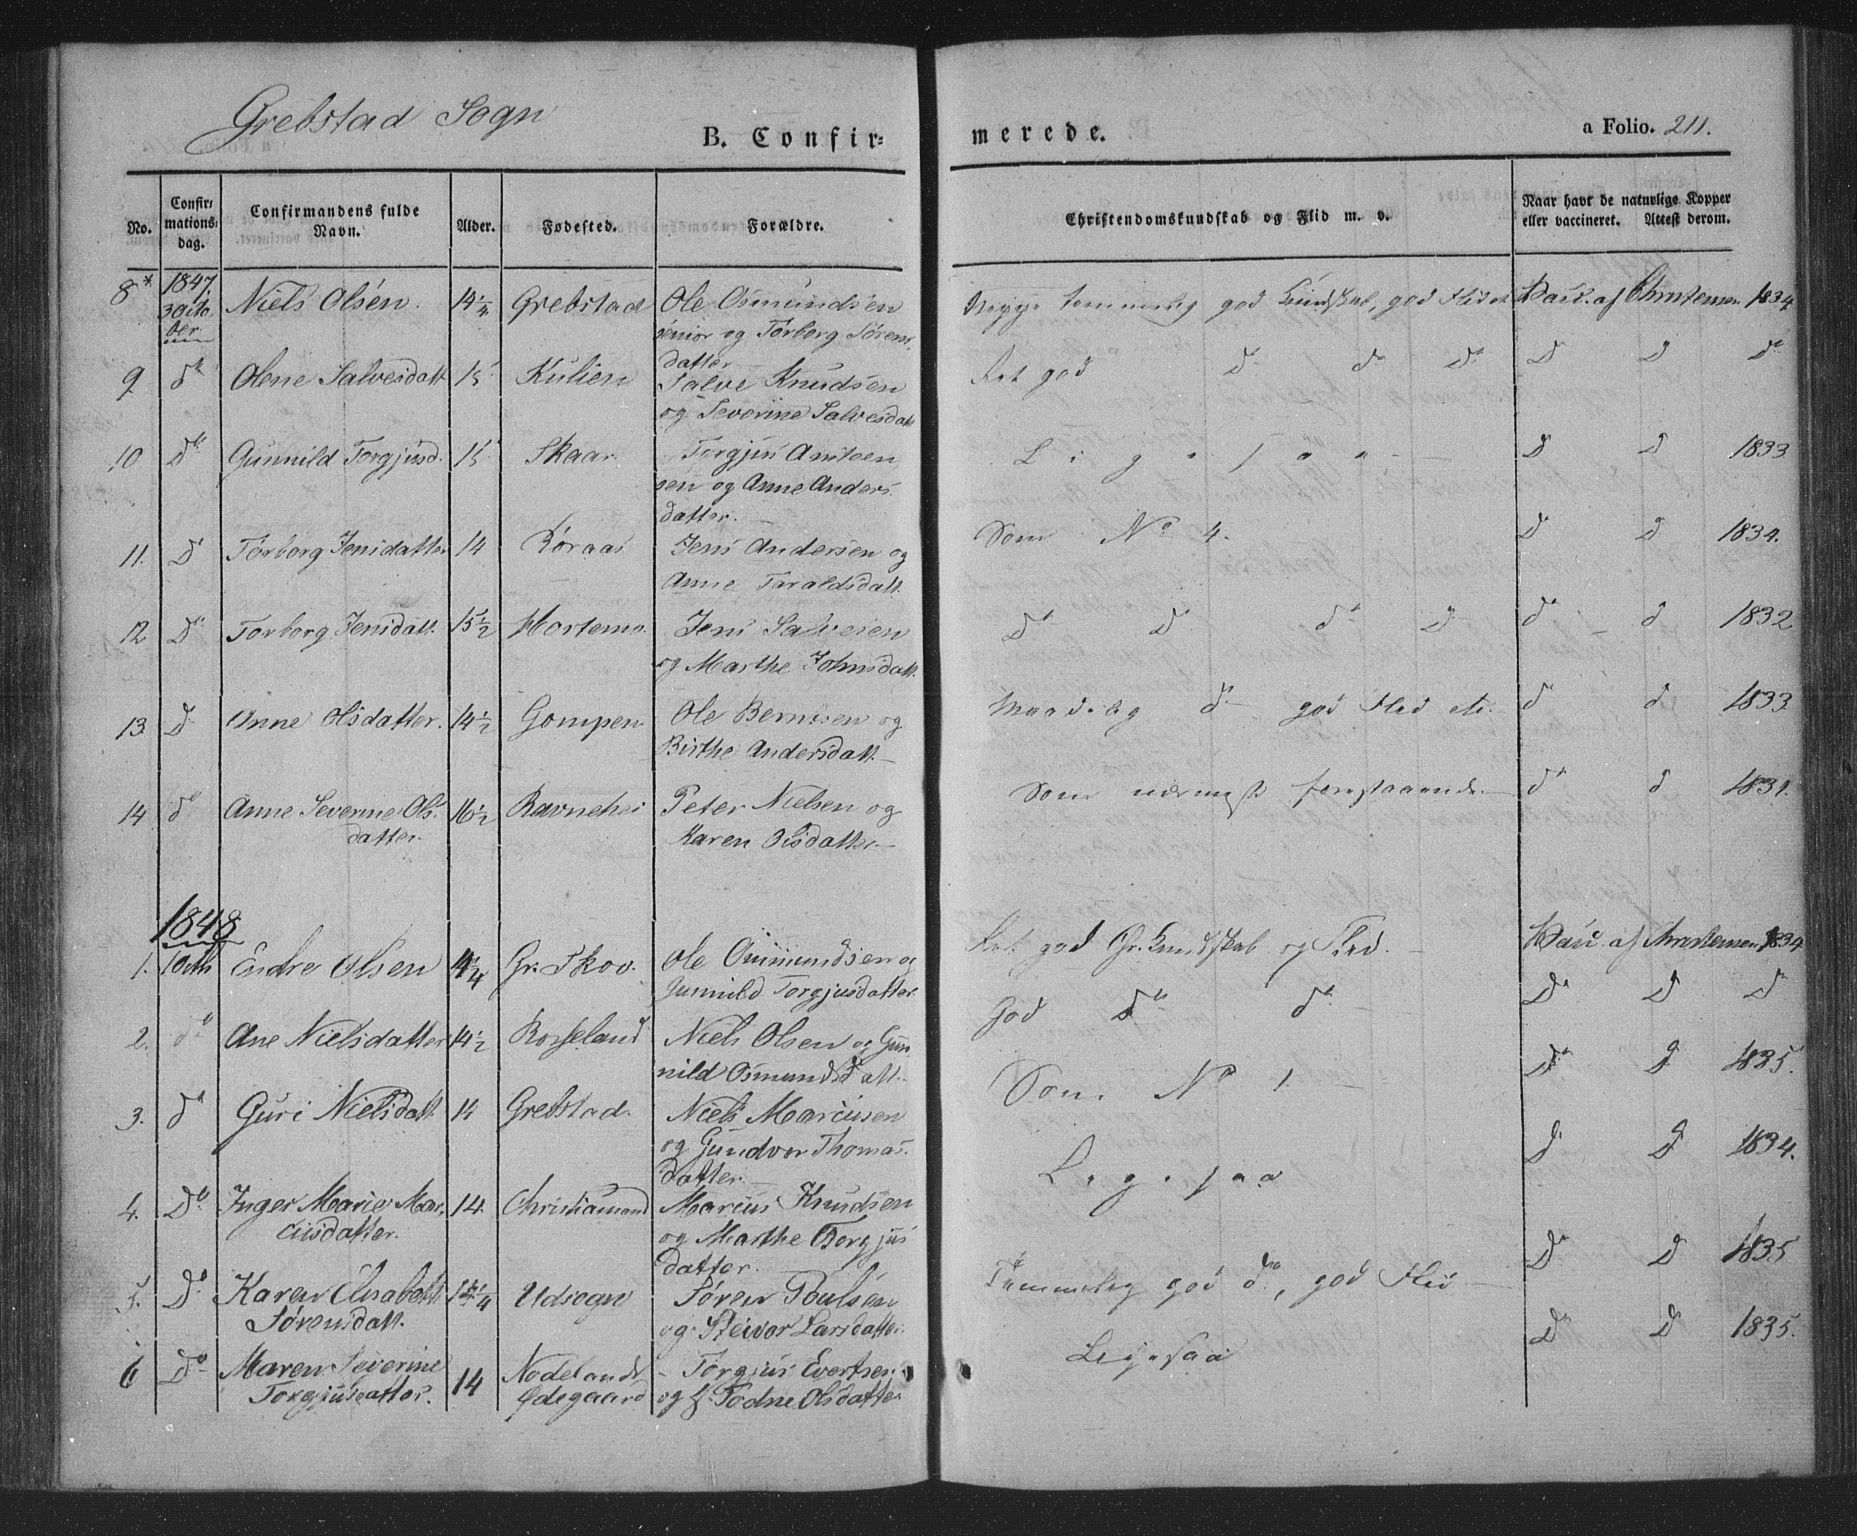 Grebstad Sogn
B. Confirmerede.
a Folio. 211.
No. Confirmationsdag. Confirmandens fulde Navn. Alder. Fødested. Forældre. Christendomskundskab og Flid m. v. Naar havt de naturlige Kopper eller vaccineret. Attest derom.
8* 1847 3 October Niels Olsen. 14½ Grebstad Ole Osmundsen
senior og Torborg Sørens
datter
temmelig god Kundskab, god Flid Vacc. af Christensen 1834
9 do Olene Salvesdatt 15 Kulien Salve Knudsen
og Severine Salvesdatt
Ret god do do do D D do
10 Do Gunnild Torgjusd. 15 Skaar Torgjus
sen og Anne Anders
datter.
Ligesaa D D 1833
11. D Torborg Jensdatter 14 Røraas Jens Andersen og
Anne Taraldsdatt.
Som No 4. D D 1834.
12 D Torborg Jensdatt. 15½ Hortemo. Jens Salvesen
og Marthe Johnsdatt.
Do Do do D do d 1832
13 D Anne Olsdatter. 14½ Gompen Ole Berntsen og
Birthe Andersdatt.
Maadelig do god Flid etc. d d 1833
14 do Anne Severine Ols 16½ Ravnehei Peter Nielsen og
datter. Karen Olsdatter
Som nærmest foregaaende. do d 1831.
1848
1. 1 Octb Endre Olsen 14¼ Gr. Skov. Ole Osmundsen og
Gunnild Torgjusdatter.
Ret god Chr. Kundskab og Flid. Vacc. af Christensen 1834
2. do Ane Nielsdatter 14½ Rosseland Niels Olsen og Gun
nild Osmundsdatt.
God Do do Do D D
3. do Guri Nielsdatt 14 Grebstad. Niels Marcusen
og Gundvor Thomas
datter.
Som No 1. Do D 1835.
4. Do Inger Marie Mar 14. Christiansand Marcus Knudsen
cusdatter. og Marthe Torgjus
datter.
Ligesaa D D 1834.
5. Do Karen Elisabeth 14¼ Udsogn Søren Poulsen
Sørensdatt. og Steivor Larsdatter.
Temmelig god do, god Flid Do D 1835
6 Do Maren Severine 14 Nodelands Torgjus Evertsen
Torgjusdatter. Ødegaard og Todne Olsdatter
Ligesaa Do D 1835.